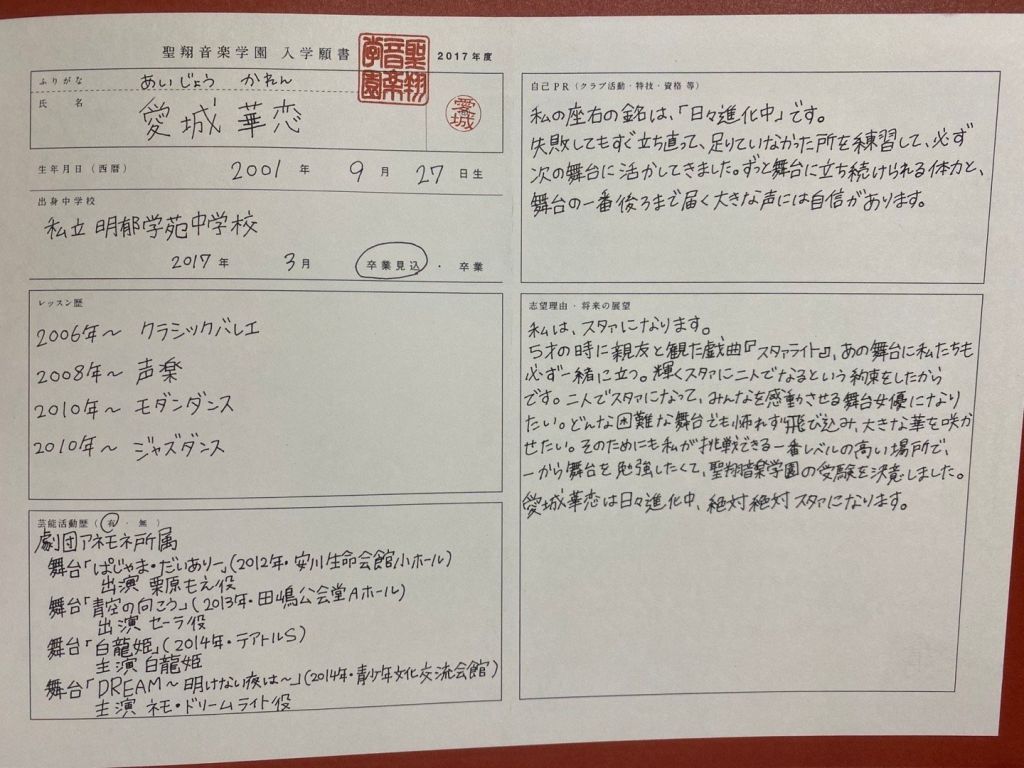 聖翔音楽学園 入学願書
聖翔音楽学園
2017年度
ふりがな あいじょう かれん
氏名 愛城 華恋
愛城
生年月日(西暦) 2001 年 9 月 27 日生
出身中学校
私立 明郁学苑中学校
2017 年 3 月 卒業見込 ・ 卒業
レッスン歴
2006年〜 クラシックバレエ
2008年〜 声楽
2010年〜 モダンダンス
2010年〜 ジャズダンス
芸能活動歴(有・無)
劇団アネモネ所属
舞台「ぱじゃま・だいありー」(2012年・安川生命会館小ホール)
出演 栗原もえ役
舞台「青空の向こう」(2013年・田嶋公会堂Aホール)
出演 セーラ役
舞台「白龍姫」(2014年・テアトルS)
主演 白龍姫
舞台「DREAM〜明けない夜は〜」(2014年・青少年文化交流会館)
主演 ネモ・ドリームライト役
自己PR(クラブ活動・特技・資格 等)
私の座右の銘は、「日々進化中」です。
失敗してもすぐ立ち直って、足りていなかった所を練習して、必ず
次の舞台に活かしてきました。ずっと舞台に立ち続けられる体力と、
舞台の一番後ろまで届く大きな声には自信があります。
志望理由・将来の展望
私は、スタァになります。
5才の時に親友と観た戯曲『スタァライト』、あの舞台に私たちも
必ず一緒に立つ。輝くスタァに二人でなるという約束をしたから
です。二人でスタァになって、みんなを感動させる舞台女優になり
たい。どんな困難な舞台でも怖れず飛び込み、大きな華を咲か
せたい。そのためにも私が挑戦できる一番レベルの高い場所で、
一から舞台を勉強したくて、聖翔音楽学園の受験を決意しました。
愛城華恋は日々進化中、絶対絶対スタァになります。